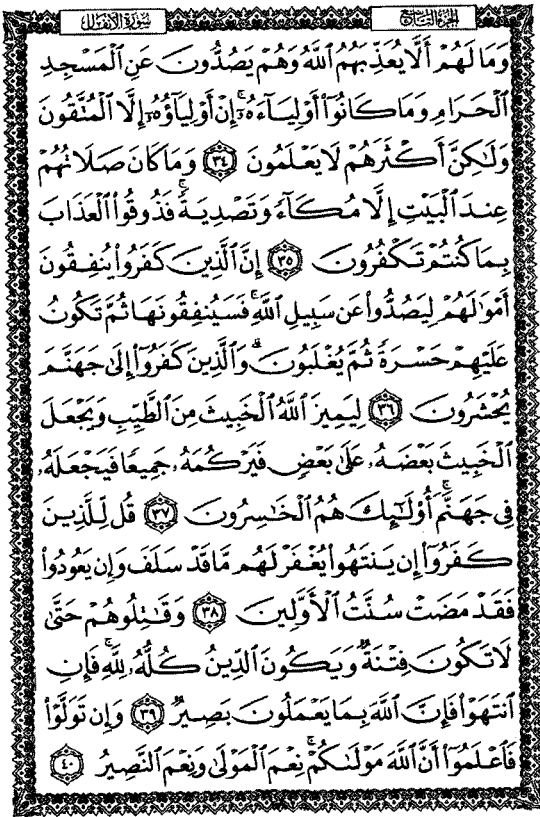 الجزء التاسع
سورة الأنفال
وَمَا لَهُمْ أَلَّا يُعَذِّبَهُمُ اللَّهُ وَهُمْ يَصُدُّونَ عَنِ الْمَسْجِدِ
الْحَرَامِ وَمَا كَانُوا أَوْلِيَاءَهُ ۚ إِنْ أَوْلِيَاؤُهُ إِلَّا الْمُتَّقُونَ
وَلَٰكِنَّ أَكْثَرَهُمْ لَا يَعْلَمُونَ ٣٤ وَمَا كَانَ صَلَاتُهُمْ
عِندَ الْبَيْتِ إِلَّا مُكَاءً وَتَصْدِيَةً ۚ فَذُوقُوا الْعَذَابَ
بِمَا كُنتُمْ تَكْفُرُونَ ٣٥ إِنَّ الَّذِينَ كَفَرُوا يُنفِقُونَ
أَمْوَٰلَهُمْ لِيَصُدُّوا عَن سَبِيلِ اللَّهِ ۚ فَسَيُنفِقُونَهَا ثُمَّ تَكُونُ
عَلَيْهِمْ حَسْرَةً ثُمَّ يُغْلَبُونَ ۗ وَالَّذِينَ كَفَرُوا إِلَىٰ جَهَنَّمَ
يُحْشَرُونَ ٣٦ لِيَمِيزَ اللَّهُ الْخَبِيثَ مِنَ الطَّيِّبِ وَيَجْعَلَ
الْخَبِيثَ بَعْضَهُ عَلَىٰ بَعْضٍ فَيَرْكُمَهُ جَمِيعًا فَيَجْعَلَهُ
فِي جَهَنَّمَ ۚ أُولَٰئِكَ هُمُ الْخَٰسِرُونَ ٣٧ قُل لِّلَّذِينَ
كَفَرُوا إِن يَنتَهُوا يُغْفَرْ لَهُم مَّا قَدْ سَلَفَ وَإِن يَعُودُوا
فَقَدْ مَضَتْ سُنَّتُ الْأَوَّلِينَ ٣٨ وَقَٰتِلُوهُمْ حَتَّىٰ
لَا تَكُونَ فِتْنَةٌ وَيَكُونَ الدِّينُ كُلُّهُ لِلَّهِ ۚ فَإِنِ
انتَهَوْا فَإِنَّ اللَّهَ بِمَا يَعْمَلُونَ بَصِيرٌ ٣٩ وَإِن تَوَلَّوْا
فَاعْلَمُوا أَنَّ اللَّهَ مَوْلَىٰكُمْ ۚ نِعْمَ الْمَوْلَىٰ وَنِعْمَ النَّصِيرُ ٤٠